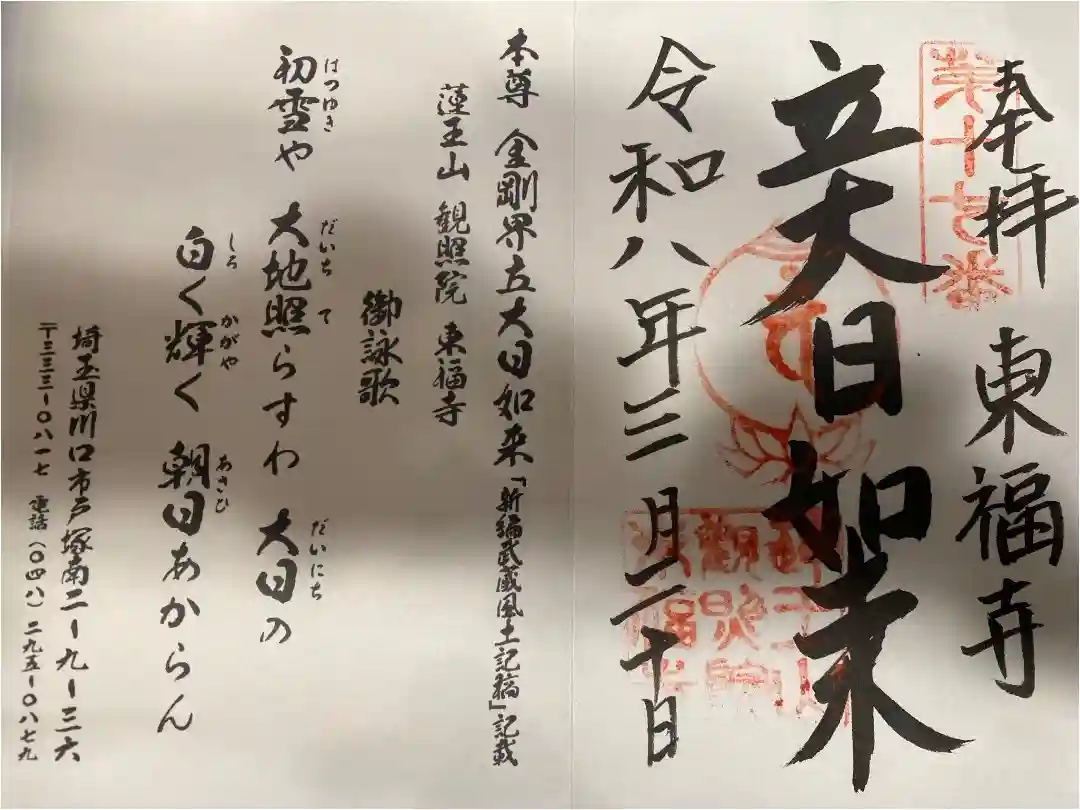 奉拝
東福寺
第十七番
立大日如来
蓮王山
観照院
東福寺
令和八年三月二十日
本尊 金剛界立大日如来「新編武蔵風土記稿」記載
蓮王山 観照院 東福寺
御詠歌
初雪や 大地照らすわ 大日の
はつゆき だいちて だいにち
白く輝く 朝日あからん
しろ かがや あさひ
埼玉県川口市戸塚南二ー九ー三六
〒三三三ー〇八一七 電話(〇四八)二九五ー〇八七九